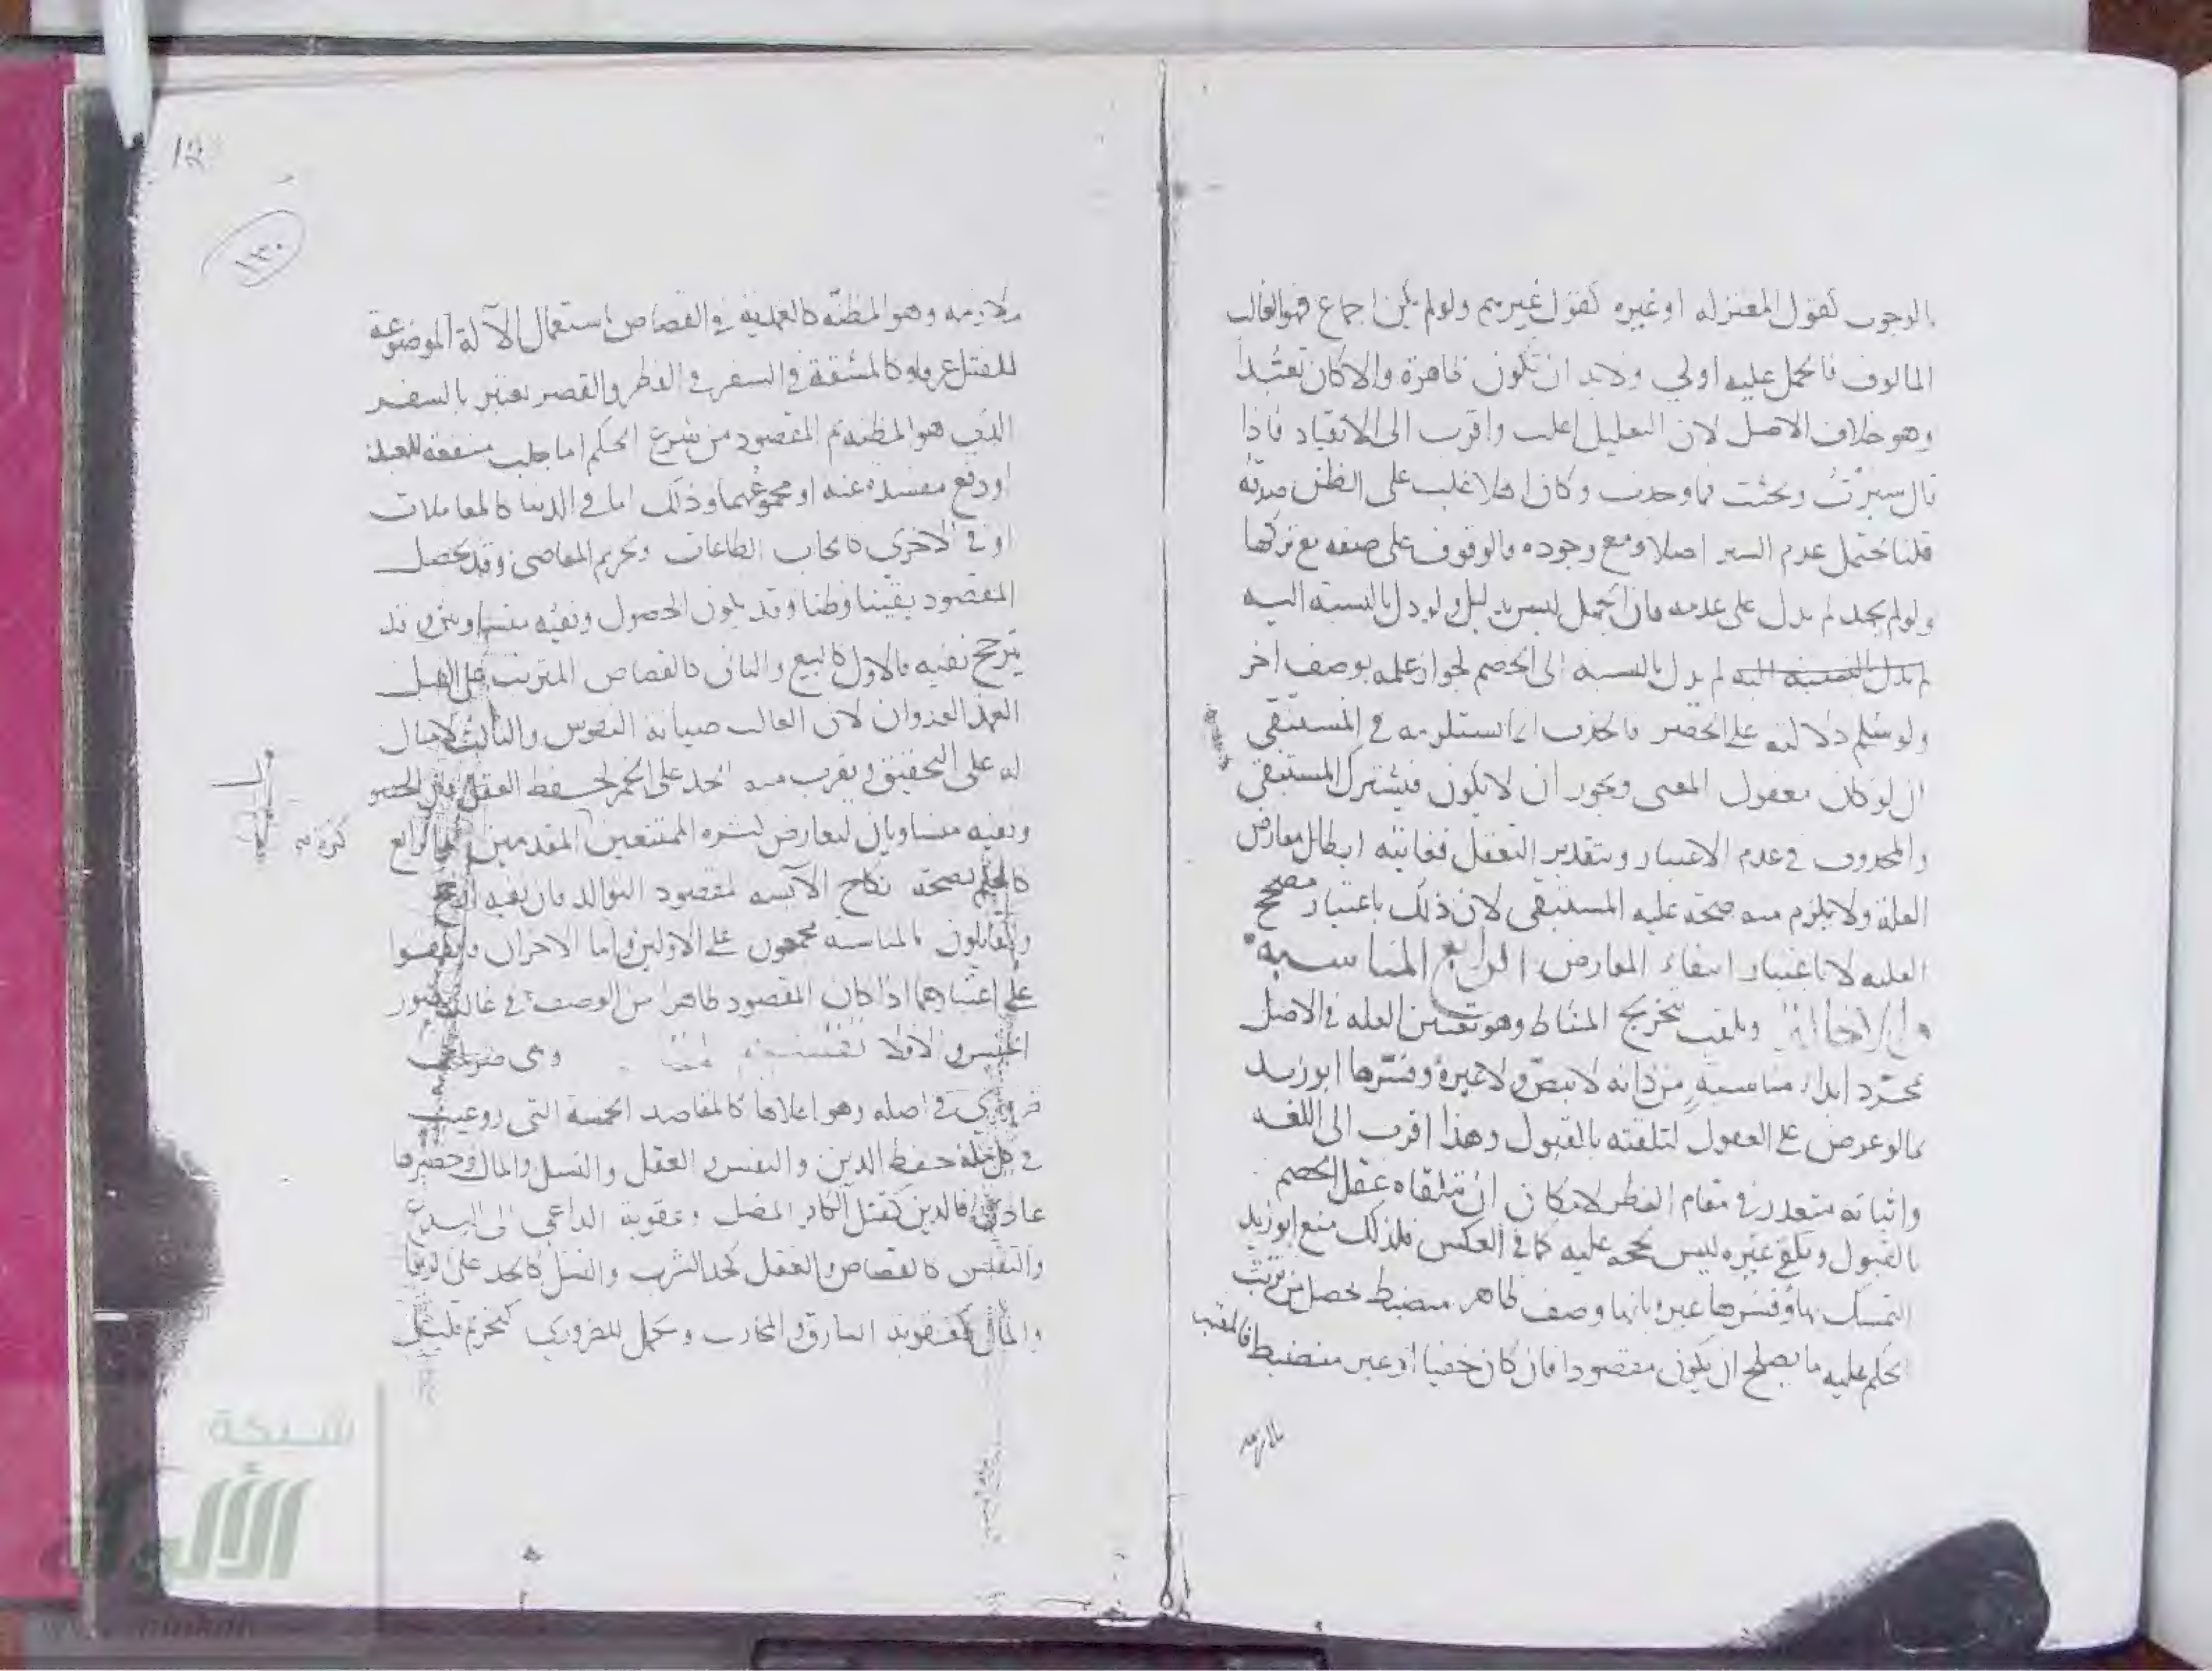 بالوجوب كقول المعتزله او غيره كقول غيرهم ولو لم يكن اجماع فهو الغالب
المالوف فالحمل عليه اولي ولابد ان تكون ظاهرة والا كان تعبُّداً
وهو خلاف الاصل لان التعليل اغلب واقرب الى الانقياد فاذا
قال سبرْتُ وبحثت فما وجدت وكان اهلا غلب على الظن صدقه
قلنا يحتمل عدم السبر اصلا ومع وجوده فالوقوف على صفه مع تركها
ولو لم يجد لم يدل على عدمه فان الجهل ليس بدليل ولو دل بالنسبة اليه
لم يدل بالنسبة الى الخصم لجواز علمه بوصف اخر
ولو سُلم دلالته على الحصر فالحذف انما يستلزمه في المستبقى
ان لو كان معقول المعنى ويجوز ان لا يكون فيشترك المستبقى
والمحذوف في عدم الاعتبار وبتقدير التعقل فغايته ابطال معارض
العلة ولا يلزم منه صحة عليه المستبقى لان ذلك باعتبار مصحح
العليه لا باعتبار انتفاء المعارض الرابع المناسبه
والاخالة ويلقب بتخريج المناط وهو تعيين العله في الاصل
بمجرّد ابداء مناسبةٍ من ذاته لا بنصّ ولا غيره وفسّرها ابو زيد
بما لو عرض على العقول لتلقته بالقبول وهذا اقرب الى اللغه
واثباته متعذر في مقام النظر لامكان ان يتلقاه عقل الخصم
بالقبول وتلقي غيره ليس بحجه عليه كما في العكس فلذلك منع ابو زيد
التمسك بها وفسرها غيره بانها وصف ظاهر منضبط يحصل من ترتيب
الحكم عليه ما يصلح ان يكون مقصودا فان كان خفيا او غير منضبط فالمعتبر
ملازمه
١٣٠
ملازمه وهو المظنّه كالعمدية في القصاص استعمال الآلة الموضوعة
للقتل عرفا وكالمشقة في السفر في الفطر والقصر يعتبر بالسفر
الذي هو المظنه ثم المقصود من شرع الحكم اما جلب منفعة للعبد
او دفع مفسده عنه او مجموعهما وذلك اما في الدنيا كالمعاملات
او في الاخرى كايجاب الطاعات وتحريم المعاصي وقد يحصل
المقصود يقينا وظنا وقد يكون الحصول ونفيه وقد
يترجح نفيه فالاول كالبيع والثاني كالقصاص المترتب على القتل
العمد العدوان لان الغالب صيانة النفوس والثالث لا مثال
له على التحقيق ويقرب منه الحد على الخمر لحفظ العقل
ونفيه متساويان لتعارض كثره الممتنعين المقدمين والرابع
كالحكم بصحة نكاح الآيسه لمقصود التوالد فان نفيه ارجح
والقايلون بالمناسبه مجمعون على الاولين واما الاخران
على اعتبارهما اذا كان المقصود ظاهرا من الوصف في غالب صور
الجنس والا فلا وهي ضربان
ضروري في اصله وهو اعلاها كالمقاصد الخمسة التي روعيت
في كل ملة حفظ الدين والنفس والعقل والنسل والمال وحصرها
عادي فالدين كقتل الكافر المضل وعقوبة الداعي الى البدع
والنفس كالقصاص والعقل كحد الشرب والنسل كالحد على الزنا
والمال كعقوبة السارق والمحارب ومكمل للضروري كتحريم قليل
كثره
شبكة